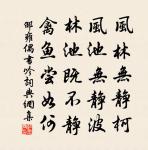 風林無靜柯
風池無靜波
林池既不靜
禽魚當如何
邵雍偶書吟詞典網集